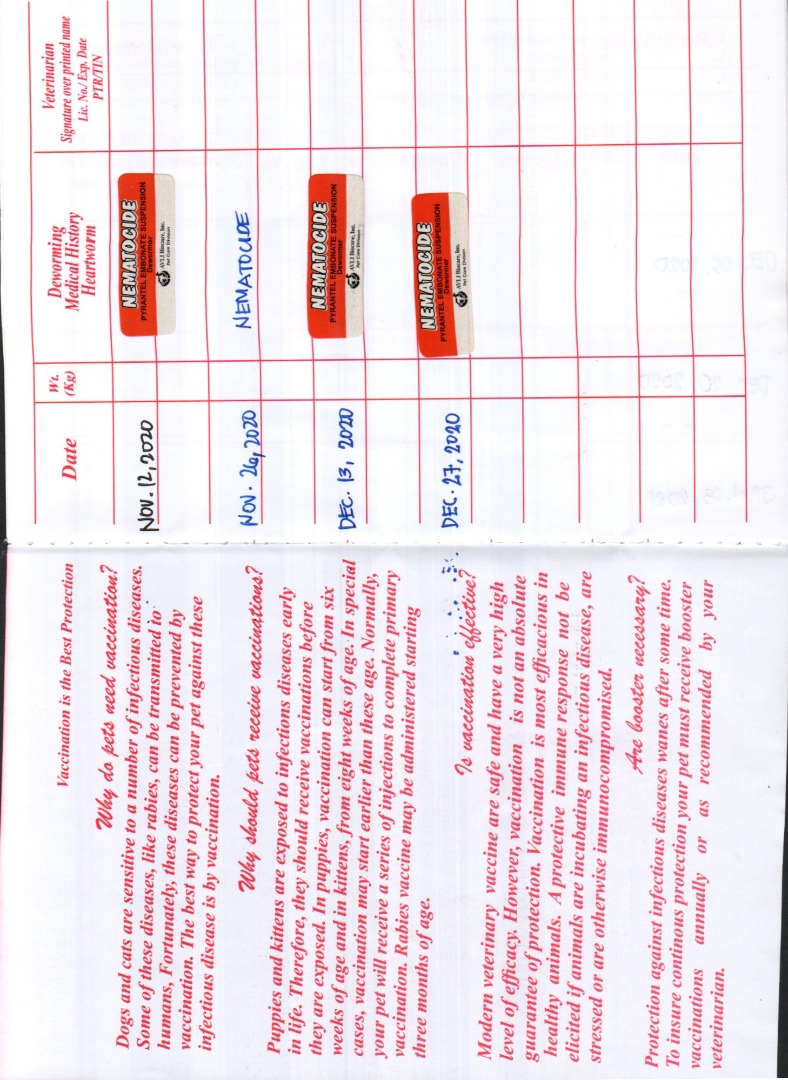 Vaccination is the Best Protection
Why do pets need vaccination?
Dogs and cats are sensitive to a number of infectious diseases.
Some of these diseases, like rabies, can be transmitted to
humans, Fortunately, these diseases can be prevented by
vaccination. The best way to protect your pet against these
infectious disease is by vaccination.
Why should pets receive vaccinations?
Puppies and kittens are exposed to infections diseases early
in life. Therefore, they should receive vaccinations before
they are exposed. In puppies, vaccination can start from six
weeks of age and in kittens, from eight weeks of age. In special
cases, vaccination may start earlier than these age. Normally,
your pet will receive a series of injections to complete primary
vaccination. Rabies vaccine may be administered starting
three months of age.
Is vaccination effective?
Modern veterinary vaccine are safe and have a very high
level of efficacy. However, vaccination is not an absolute
guarantee of protection. Vaccination is most efficacious in
healthy animals. A protective immune response not be
elicited if animals are incubating an infectious disease, are
stressed or are otherwise immunocompromised.
Are booster necessary?
Protection against infectious diseases wanes after some time.
To insure continous protection your pet must receive booster
vaccinations annually or as recommended by your
veterinarian.
Date
Wt.
(Kg)
Deworming
Medical History
Heartworm
Veterinarian
Signature over printed name
Lic. No./ Exp. Date
PTR/TIN
NOV. 12, 2020
NEMATOCIDE
PYRANTEL EMBONATE SUSPENSION
Dewormer
AVLI Biocare, Inc.
Pet Care Division
NOV. 26, 2020 NEMATOCIDE
DEC. 13, 2020
NEMATOCIDE
PYRANTEL EMBONATE SUSPENSION
Dewormer
AVLI Biocare, Inc.
Pet Care Division
DEC. 27, 2020
NEMATOCIDE
PYRANTEL EMBONATE SUSPENSION
Dewormer
AVLI Biocare, Inc.
Pet Care Division